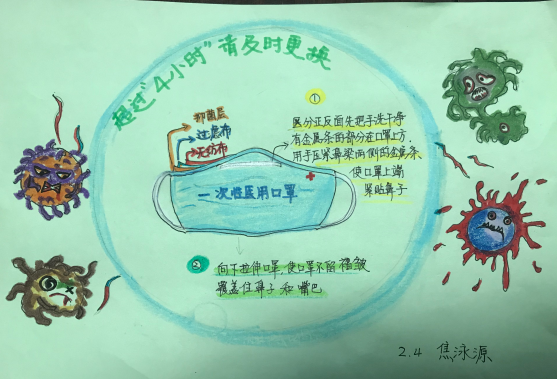 超过"4小时"请及时更换
①
区分正反面先把手洗干净
有金属条面部分在口罩上方,
用手压紧鼻梁两侧的金属条
使口罩上端
紧贴鼻子
抑菌层
过滤布
无纺布
一次性医用口罩
②
向下拉伸口罩,使口罩不留褶皱
覆盖住鼻子和嘴巴
2.4 焦泳源